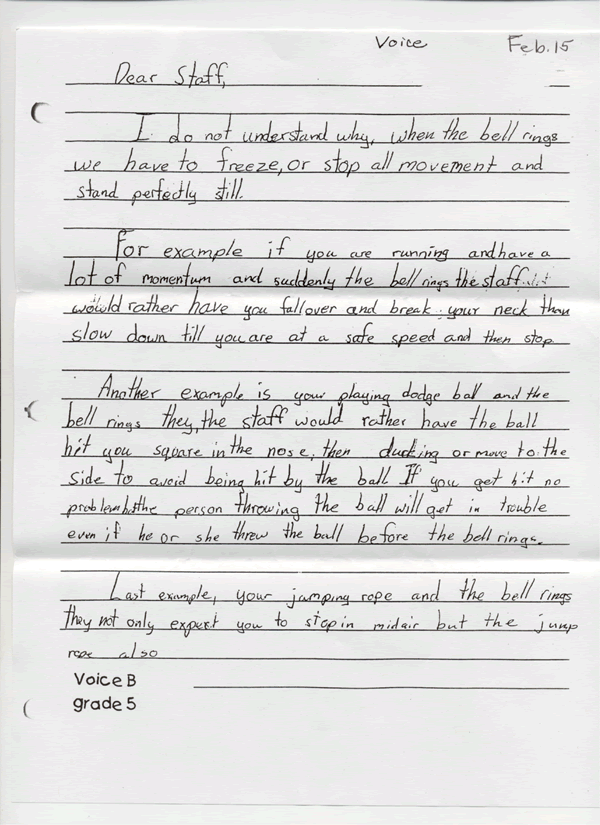 Voice Feb. 15
Dear Staff,
I do not understand why, when the bell rings
we have to freeze, or stop all movement and
stand perfectly still.
For example if you are running and have a
lot of momentum and suddenly the bell rings the staff
would rather have you fall over and break your neck than
slow down till you are at a safe speed and then stop
Another example is your playing dodge ball and the
bell rings they, the staff would rather have the ball
hit you square in the nose, then ducking or move to the
side to avoid being hit by the ball If you get hit no
problem but the person throwing the ball will get in trouble
even if he or she threw the ball before the bell rings.
Last example, your jumping rope and the bell rings
they not only expect you to stop in midair but the jump
rope also
Voice B
grade 5